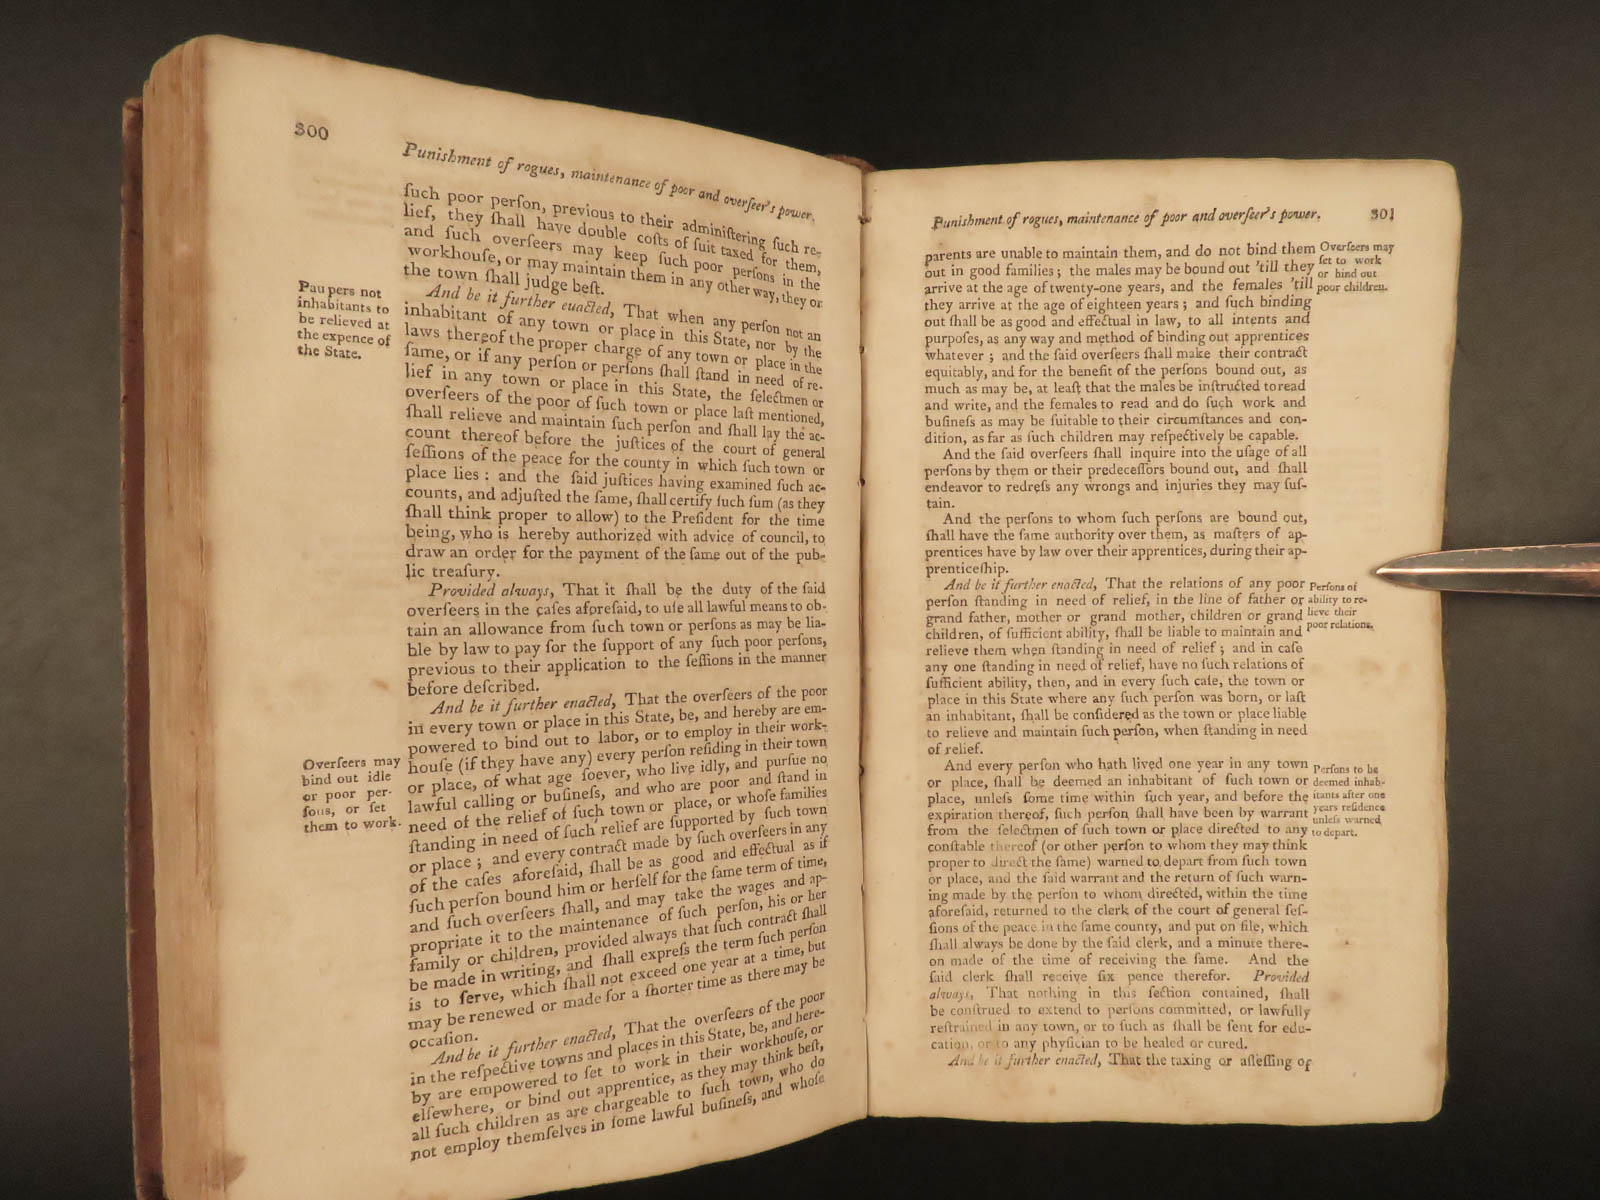 300
Punishment of rogues, maintenance of poor and overſeer's power.
ſuch poor perſon, previous to their adminiſtering ſuch re-
lief, they ſhall have double coſts of ſuit taxed for them,
and ſuch overſeers may keep ſuch poor perſons in the
workhouſe, or may maintain them in any other way, they or
the town ſhall judge beſt.
Paupers not
inhabitants to
be relieved at
the expence of
the State.
And be it further euacted, That when any perſon not an
inhabitant of any town or place in this State, nor by the
laws thereof the proper charge of any town or place in the
ſame, or if any perſon or perſons ſhall ſtand in need of re-
lief in any town or place in this State, the ſelectmen or
overſeers of the poor of ſuch town or place laſt mentioned,
ſhall relieve and maintain ſuch perſon and ſhall lay the ac-
count thereof before the juſtices of the court of general
ſeſſions of the peace for the county in which ſuch town or
place lies : and the ſaid juſtices having examined ſuch ac-
counts, and adjuſted the ſame, ſhall certify ſuch ſum (as they
ſhall think proper to allow) to the Preſident for the time
being, who is hereby authorized with advice of council, to
draw an order for the payment of the ſame out of the pub-
lic treaſury.
Provided always, That it ſhall be the duty of the ſaid
overſeers in the caſes aforeſaid, to uſe all lawful means to ob-
tain an allowance from ſuch town or perſons as may be lia-
ble by law to pay for the ſupport of any ſuch poor perſons,
previous to their application to the ſeſſions in the manner
before deſcribed.
Overſeers may
bind out idle
or poor per-
ſons, or ſet
them to work.
And be it further enacted, That the overſeers of the poor
in every town or place in this State, be, and hereby are em-
powered to bind out to labor, or to employ in their work-
houſe (if they have any) every perſon reſiding in their town
or place, of what age ſoever, who live idly, and purſue no
lawful calling or buſineſs, and who are poor and ſtand in
need of the relief of ſuch town or place, or whoſe families
ſtanding in need of ſuch relief are ſupported by ſuch town
or place ; and every contract made by ſuch overſeers in any
of the caſes aforeſaid, ſhall be as good and effectual as if
ſuch perſon bound him or herſelf for the ſame term of time,
and ſuch overſeers ſhall, and may take the wages and ap-
propriate it to the maintenance of ſuch perſon, his or her
family or children, provided always that ſuch contract ſhall
be made in writing, and ſhall expreſs the term ſuch perſon
is to ſerve, which ſhall not exceed one year at a time, but
may be renewed or made for a ſhorter time as there may be
occaſion.
And be it further enacted, That the overſeers of the poor
in the reſpective towns and places in this State, be, and here-
by are empowered to ſet to work in their workhouſe, or
elſewhere, or bind out apprentice, as they may think beſt,
all ſuch children as are chargeable to ſuch town, who do
not employ themſelves in ſome lawful buſineſs, and whoſe
Punishment of rogues, maintenance of poor and overſeer's power. 301
parents are unable to maintain them, and do not bind them
out in good families ; the males may be bound out 'till they
arrive at the age of twenty-one years, and the females 'till
they arrive at the age of eighteen years ; and ſuch binding
out ſhall be as good and effectual in law, to all intents and
purpoſes, as any way and method of binding out apprentices
whatever ; and the ſaid overſeers ſhall make their contract
equitably, and for the benefit of the perſons bound out, as
much as may be, at leaſt that the males be inſtructed to read
and write, and the females to read and do ſuch work and
buſineſs as may be ſuitable to their circumſtances and con-
dition, as far as ſuch children may reſpectively be capable.
Overſeers may
ſet to work
or bind out
poor children.
And the ſaid overſeers ſhall inquire into the uſage of all
perſons by them or their predeceſſors bound out, and ſhall
endeavor to redreſs any wrongs and injuries they may ſuſ-
tain.
And the perſons to whom ſuch perſons are bound out,
ſhall have the ſame authority over them, as maſters of ap-
prentices have by law over their apprentices, during their ap-
prenticeſhip.
And be it further enacted, That the relations of any poor
perſon ſtanding in need of relief, in the line of father or
grand father, mother or grand mother, children or grand
children, of ſufficient ability, ſhall be liable to maintain and
relieve them when ſtanding in need of relief ; and in caſe
any one ſtanding in need of relief, have no ſuch relations of
ſufficient ability, then, and in every ſuch caſe, the town or
place in this State where any ſuch perſon was born, or laſt
an inhabitant, ſhall be conſidered as the town or place liable
to relieve and maintain ſuch perſon, when ſtanding in need
of relief.
Perſons of
ability to re-
lieve their
poor relations.
And every perſon who hath lived one year in any town
or place, ſhall be deemed an inhabitant of ſuch town or
place, unleſs ſome time within ſuch year, and before the
expiration thereof, ſuch perſon ſhall have been by warrant
from the ſelectmen of ſuch town or place directed to any
conſtable thereof (or other perſon to whom they may think
proper to direct the ſame) warned to depart from ſuch town
or place, and the ſaid warrant and the return of ſuch warn-
ing made by the perſon to whom directed, within the time
aforeſaid, returned to the clerk of the court of general ſeſ-
ſions of the peace in the ſame county, and put on file, which
ſhall always be done by the ſaid clerk, and a minute there-
on made of the time of receiving the ſame. And the
ſaid clerk ſhall receive ſix pence therefor. Provided
always, That nothing in this ſection contained, ſhall
be conſtrued to extend to perſons committed, or lawfully
reſtrained in any town, or to ſuch as ſhall be ſent for edu-
cation, or to any phyſician to be healed or cured.
Perſons to be
deemed inhab-
itants after one
years reſidence
unleſs warned
to depart.
And be it further enacted, That the taxing or aſſeſſing of